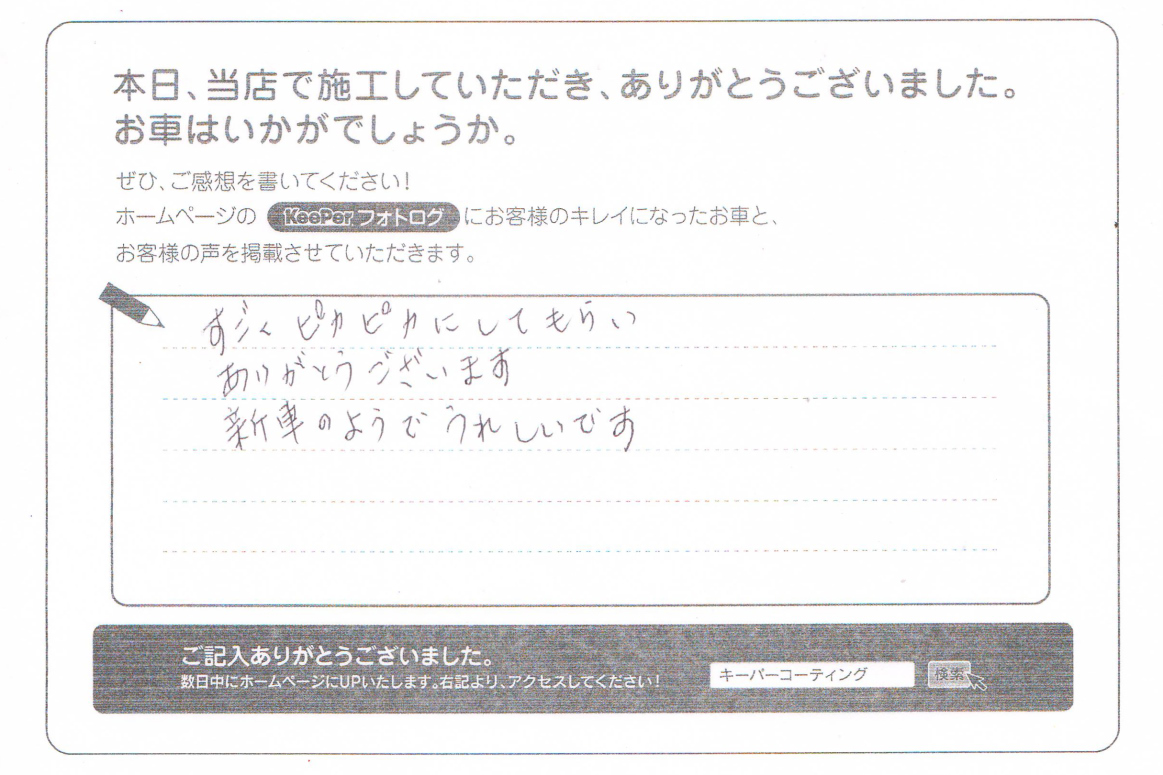 本日、当店で施工していただき、ありがとうございました。
お車はいかがでしょうか。
ぜひ、ご感想を書いてください！
ホームページの KeePer フォトログ にお客様のキレイになったお車と、
お客様の声を掲載させていただきます。
すごく ピカピカにしてもらい
ありがとうございます
新車のようでうれしいです
ご記入ありがとうございました。
数日中にホームページにUPいたします。右記より、アクセスしてください！
キーパーコーティング 検索